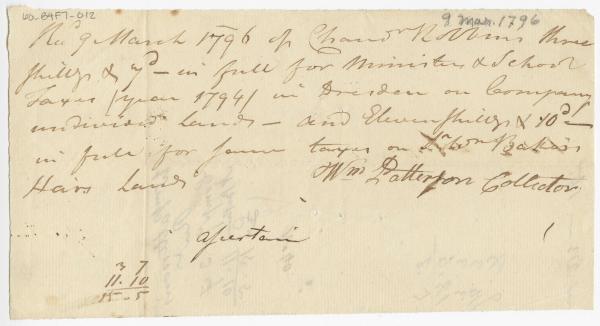 60-B4F7-012
9 Mar. 1796
Rec'd 9 March 1796 of Chandr Robbins three
shillgs & 7d — in full for Minister & School
Taxes (year 1794) in Dresden on Company
undivided Lands — and Eleven shillgs & 10d —
in full for same taxes on Wm Bakers
Heirs Lands
Wm Patterson Collector
3 7
11. 10
15 - 5